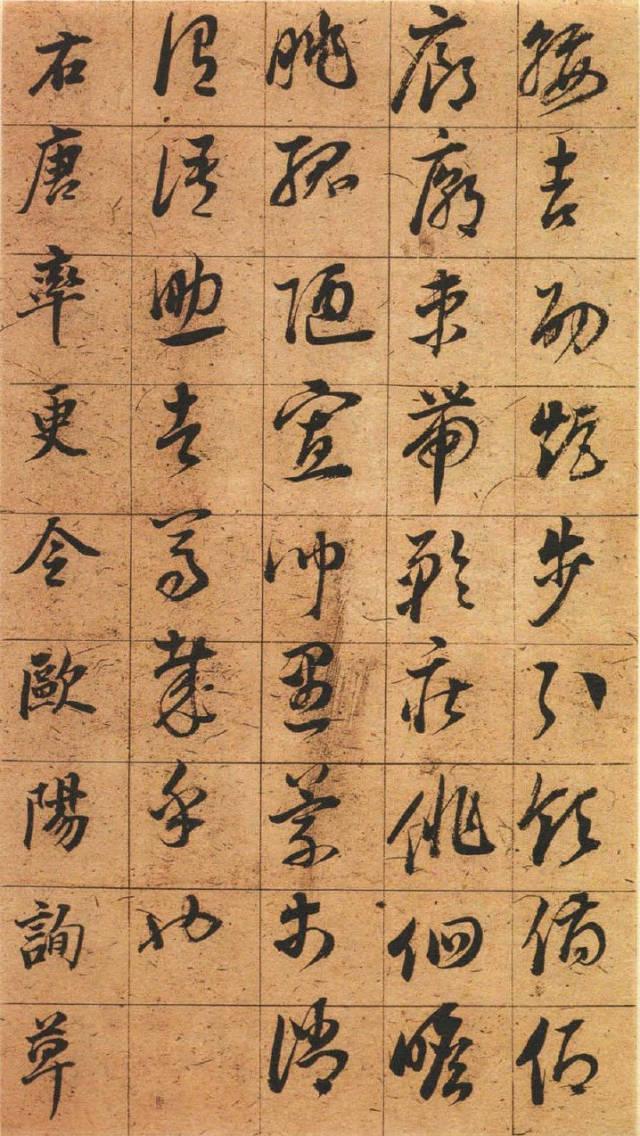 綏吉劭矩步引領俯仰
廊廟束帶矜莊徘徊瞻
眺孤陋寡聞愚蒙等誚
謂語助者焉哉乎也
右唐率更令歐陽詢草